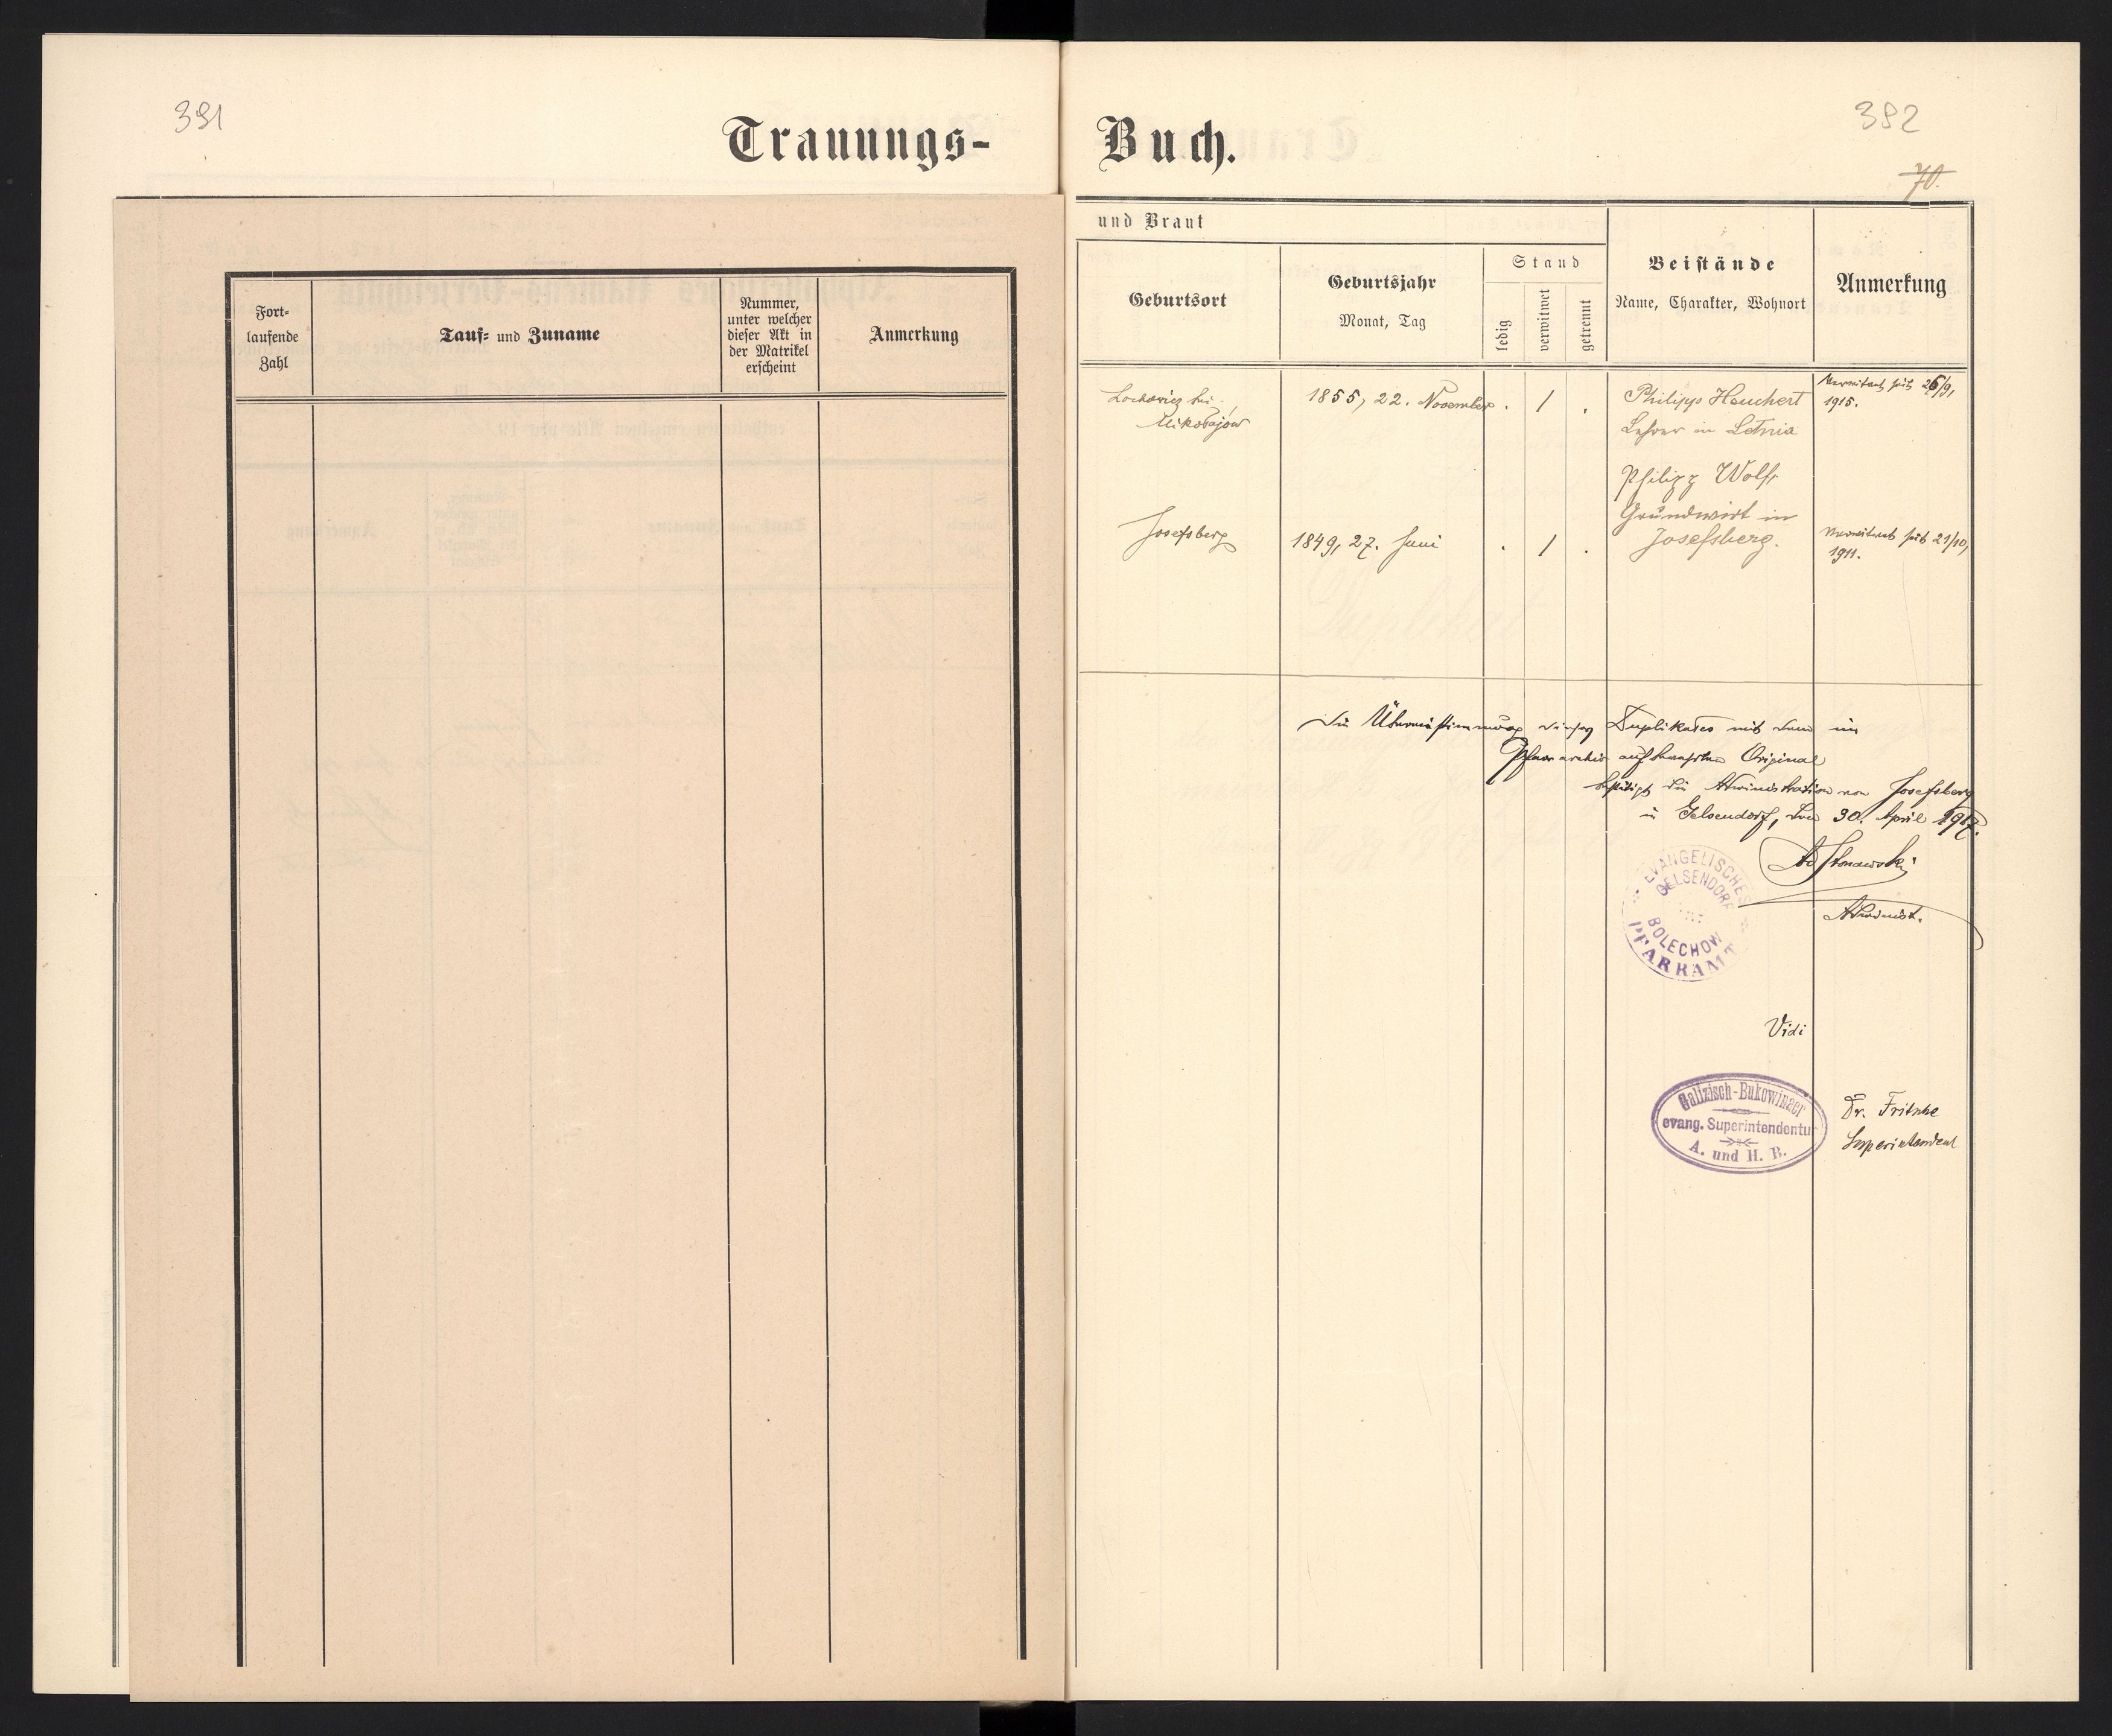 391
Trauungs-
Fort-
laufende
Zahl
Tauf- und Zuname
Nummer,
unter welcher
dieser Akt in
der Matrikel
erscheint
Anmerkung
Buch.
392
70.
und Braut
Geburtsort
Geburtsjahr
Monat, Tag
Stand
ledig
verwitwet
getrennt
Beistände
Name, Charakter, Wohnort
Anmerkung
bei
Mikołajów
1855, 22. November
. / .
Philipp Hauchert
Lehrer in Letnia
Verwitwet seit 26/9,
1915.
Philipp Wolf,
Grundwirt in
Josefsberg.
Josefsberg
1849, 27. Juni
. / .
Verwitwet seit 21/10,
1911.
Die Übereinstimmung dieses Duplikates mit dem im
Pfarrarchiv aufbewahrten Original
bestätigt die Administration von Josefsberg
in Gelsendorf, den 30. April 1917.
EVANGELISCHES
GELSENDORF
BOLECHOW
PFARRAMT
Administ.
Vidi
Galizisch-Bukowinaer
evang. Superintendentur
A. und H. B.
Dr. Fritsche
Superintendent